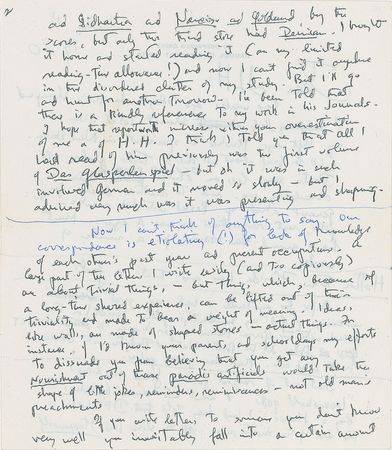 2
and Siddhartha and Narziss and Goldmund by the
score, but only the third store had Demian. I bought
it home and started reading it (on my limited
reading-time allowance!) and now I can't find it anywhere
in the disordered clutter of my study. But I'll go
and hunt for another tomorrow. I've been told that
there is a kindly reference to my work in his Journals.
I hope that opportunate increases, within your overestimation
of me & of H.H. I think I told you that all I
had read of him previously was the first volume
of Das Glasperlenspiel - but oh it was in such
involved German and it moved so slowly - but I
admired very much was it was presenting and shaping.
Now I can't think of anything to say. Our
correspondence is etiolating (!) for lack of knowledge
of each other's past year and present occupation. A
large part of the letters I write easily (and too copiously)
are about trivial things, - but things, which, because of
a long-time shared experience can be lifted out of their
triviality and made to bear a weight of meaning. Ideas,
like walls, are made of shaped stones - actual things. For
instance, if I'd known your parents, and schooldays my efforts
to dissuade you from believing that you get any
nourishment out of those paradis artificiels would take the
shape of little jokes, reminders, reminiscences - not old man's
preachments
If you write letters to someone you don't know
very well you inevitably fall into a certain amount